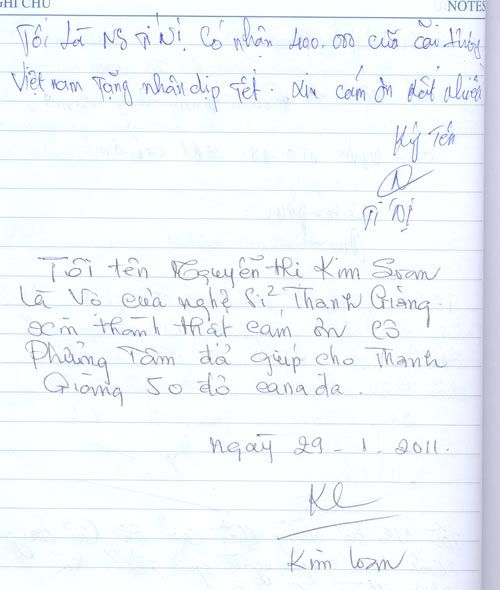 GHI CHÚ
NOTES
Tôi là NS Tí Nị Có nhận 400.000 của cải lương
Việt nam Tặng nhân dịp Tết. Xin cám ơn rất nhiều
Ký Tên
Tí Nị
Tôi tên Nguyễn thi Kim Loan
là Vỏ của nghệ Si² Thanh Giàng.
xin thành thật cám ơn cô
Phưởng Tâm đả giúp cho Thanh
Giàng 50 đô canada.
Ngaỳ 29 - 1. 2011.
KL
Kim Loan